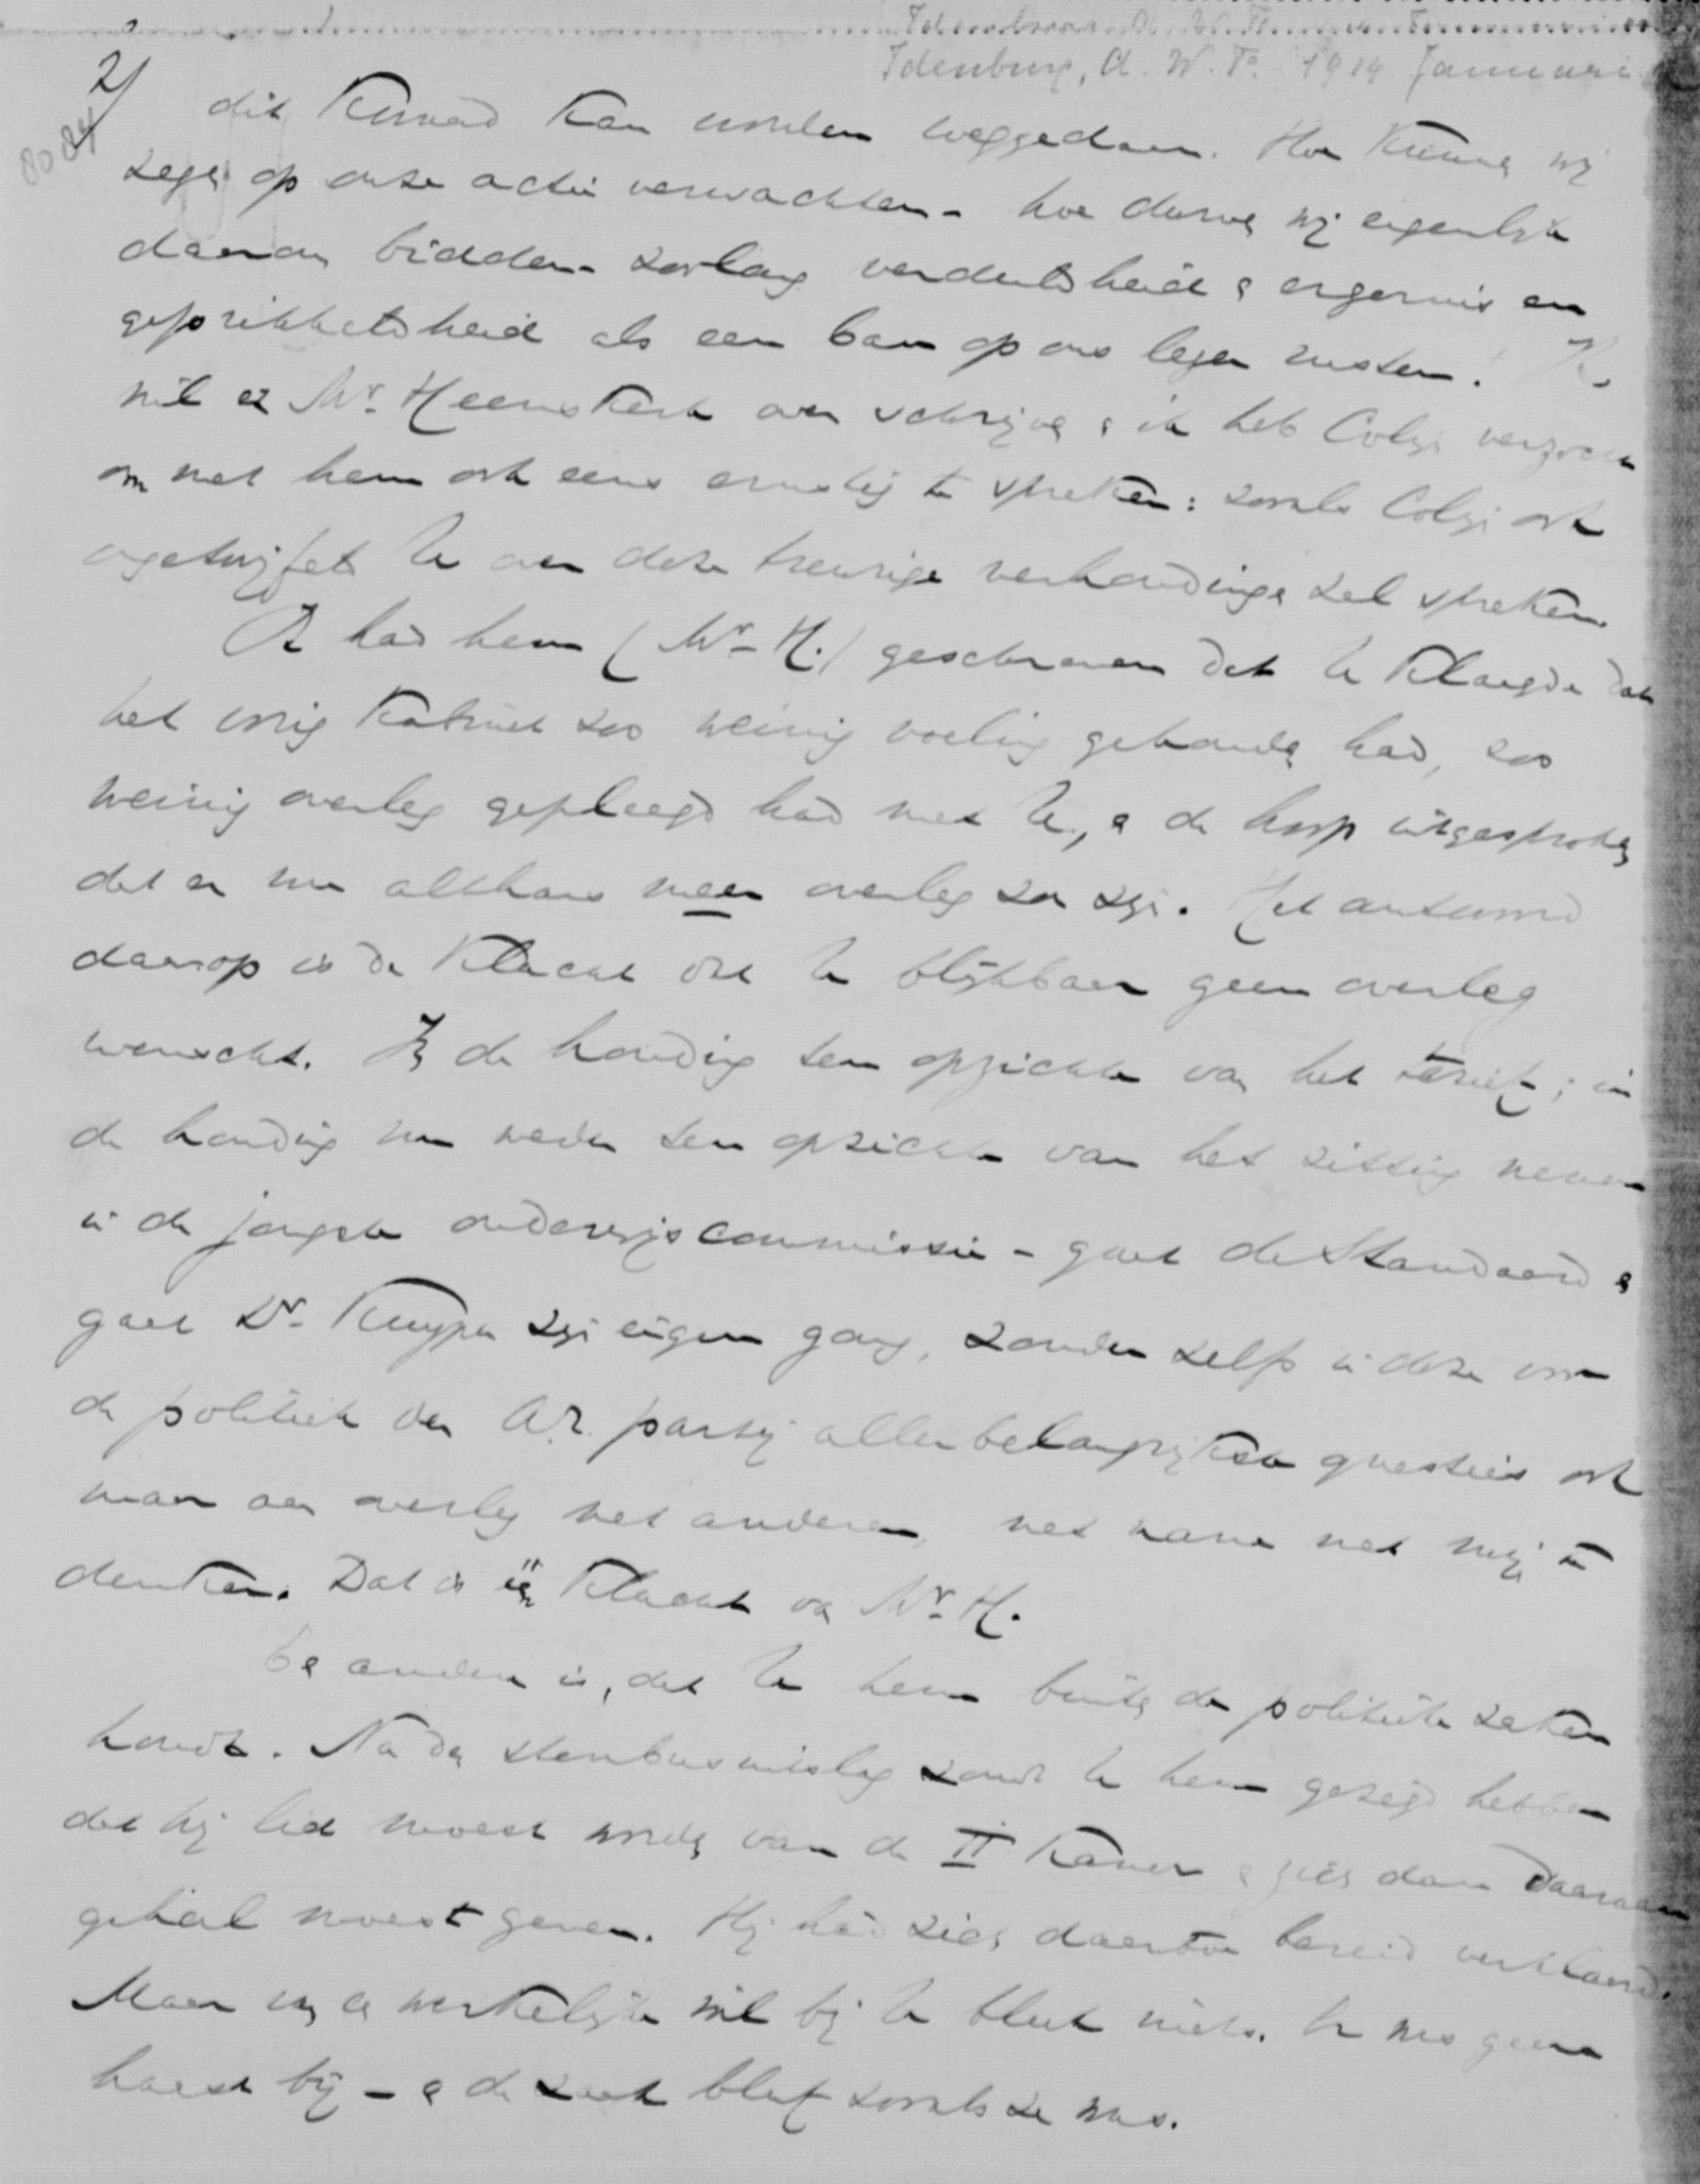 Idenburg, A. W. F. 1914 Januari
2/
8084
dit kwaad kan worden weggedaan. Hoe kunnen wij
zegen op onze actie verwachten - hoe durven wij eigenlijk
daarom bidden - zoolang verdeeldheid & ergernis en
geprikkeldheid als een ban op ons leger rusten! Ik
wil er Mr. Heemskerk over schrijven & ik heb Colijn verzocht
om met hem ook eens ernstig te spreken: zooals Colijn ook
ongetwijfeld U over deze treurige verhoudingen zal spreken.
Ik had hem (Mr. H.) geschreven dat U klaagde dat
het vorig Kabinet zoo weinig voeling gehouden had, zoo
weinig overleg gepleegd had met U, & de hoop uitgesproken
dat er nu althans meer overleg zou zijn. Het antwoord
daarop is de klacht dat U blijkbaar geen overleg
wenscht. In de houding ten opzichte van het tarief; in
de houding nu weder ten opzichte van het zitting nemen
in de jongste onderwijscommissie - gaat de Standaard &
gaat Dr. Kuyper zijn eigen gang, zonder zelfs in deze voor
de politiek der A.R. partij allerbelangrijkste questies ook
maar aan overleg met anderen, met name met mij te
denken. Dat is één klacht van Mr. H.
De andere is, dat U hem buiten de politieke zaken
houdt. Na den stembusuitslag zoudt U hem gezegd hebben
dat hij lid moest worden van de II Kamer & zich dan daaraan
geheel moest geven. Hij had zich daartoe bereid verklaard.
Maar van een werkelijke wil bij U bleek niets. Er was geen
haast bij - & de zaak bleef zooals ze was.